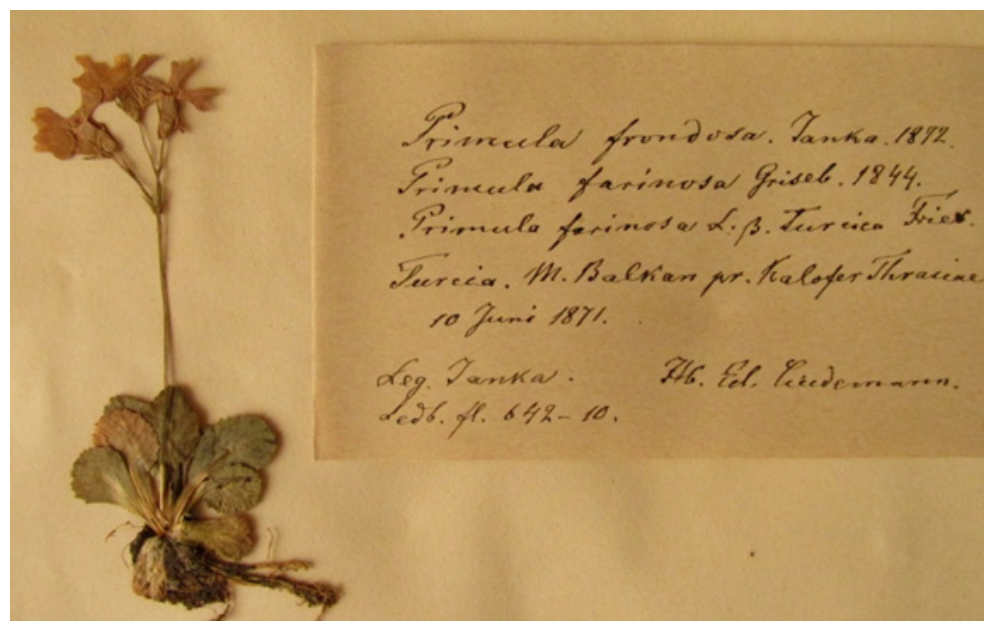 Primula frondosa. Janka. 1872.
Primula farinosa Griseb. 1844.
Primula farinosa L. β. Turcica Fries.
Turcia. M. Balkan pr. Kalofer Thraciae
10 Juni 1871.
Leg. Janka. Hb. Ed. Lindemann.
Ledb. fl. 642-10.